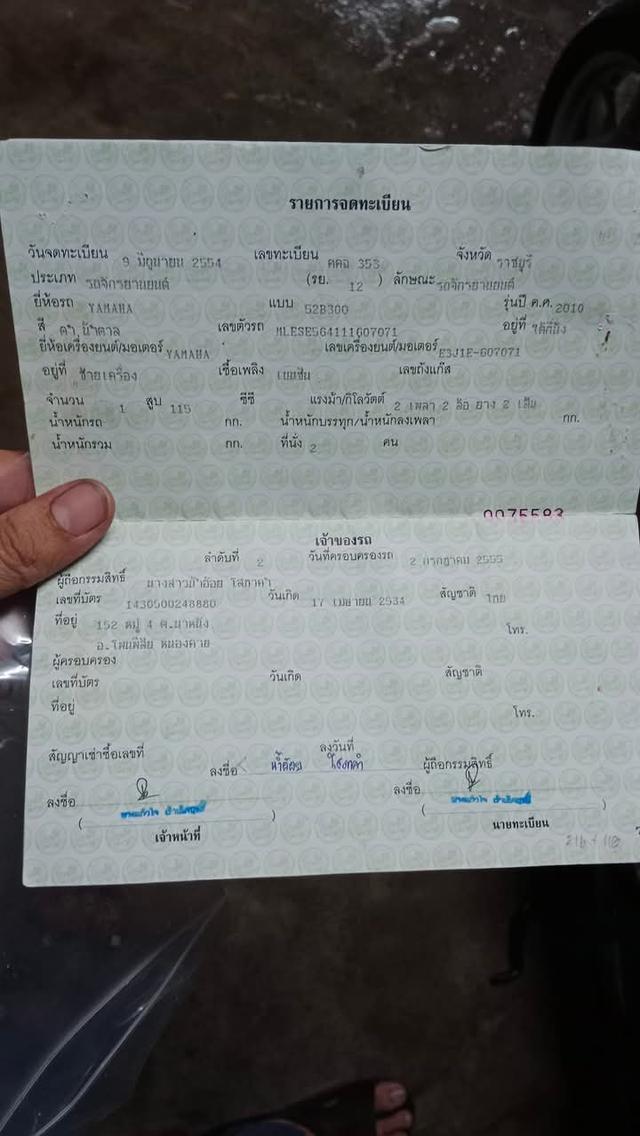 รายการจดทะเบียน
วันจดทะเบียน 9 มิถุนายน 2554 เลขทะเบียน คคฉ 353 จังหวัด ราชบุรี
ประเภท รถจักรยานยนต์ (รย. 12 ) ลักษณะ รถจักรยานยนต์
ยี่ห้อรถ YAMAHA แบบ 52B300 รุ่นปี ค.ศ. 2010
สี ดำ,น้ำตาล เลขตัวรถ MLESE564111607071 อยู่ที่ ใต้ที่นั่ง
ยี่ห้อเครื่องยนต์/มอเตอร์ YAMAHA เลขเครื่องยนต์/มอเตอร์ E3J1E-607071
อยู่ที่ ซ้ายเครื่อง เชื้อเพลิง เบนซิน เลขถังแก๊ส
จำนวน 1 สูบ 115 ซีซี แรงม้า/กิโลวัตต์ 2 เพลา 2 ล้อ ยาง 2 เส้น
น้ำหนักรถ กก. น้ำหนักบรรทุก/น้ำหนักลงเพลา กก.
น้ำหนักรวม กก. ที่นั่ง 2 คน
0075583
เจ้าของรถ
ลำดับที่ 2 วันที่ครอบครองรถ 2 กรกฎาคม 2555
ผู้ถือกรรมสิทธิ์ นางสาวน้ำอ้อย โสภาคำ
เลขที่บัตร 1430500248880 วันเกิด 17 เมษายน 2534 สัญชาติ ไทย
ที่อยู่ 152 หมู่ 4 ต.นาหนัง โทร.
อ.โพนพิสัย หนองคาย
ผู้ครอบครอง
เลขที่บัตร วันเกิด สัญชาติ
ที่อยู่ โทร.
สัญญาเช่าซื้อเลขที่ ลงวันที่
ลงชื่อ น้ำอ้อย โสภาคำ ผู้ถือกรรมสิทธิ์
ลงชื่อ ลงชื่อ
( ) ( )
เจ้าหน้าที่ นายทะเบียน